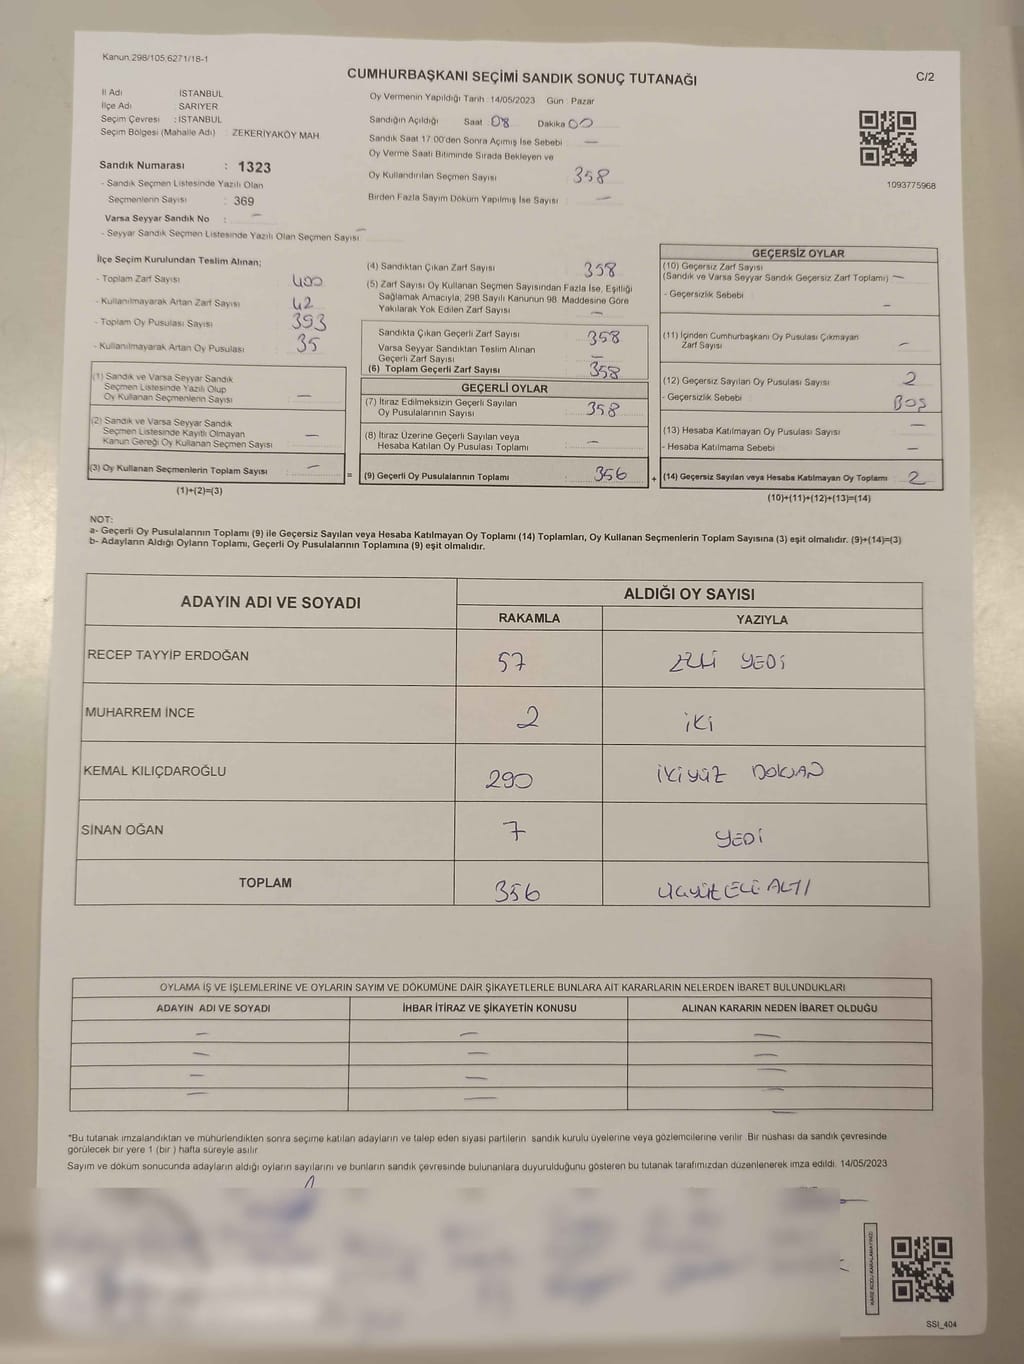 Kanun;298/105;6271/18-1
CUMHURBAŞKANI SEÇİMİ SANDIK SONUÇ TUTANAĞI
C/2
İl Adı : İSTANBUL
İlçe Adı : SARIYER
Seçim Çevresi : İSTANBUL
Seçim Bölgesi (Mahalle Adı) : ZEKERİYAKÖY MAH.
Oy Vermenin Yapıldığı Tarih : 14/05/2023 Gün : Pazar
Sandığın Açıldığı Saat 08 Dakika 00
Sandık Saat 17:00'den Sonra Açımış İse Sebebi : —
Oy Verme Saati Bitiminde Sırada Bekleyen ve
Oy Kullandırılan Seçmen Sayısı : 358
Birden Fazla Sayım Döküm Yapılmış İse Sayısı : —
1093775968
Sandık Numarası : 1323
- Sandık Seçmen Listesinde Yazılı Olan
Seçmenlerin Sayısı : 369
Varsa Seyyar Sandık No : —
- Seyyar Sandık Seçmen Listesinde Yazılı Olan Seçmen Sayısı: —
İlçe Seçim Kurulundan Teslim Alınan;
- Toplam Zarf Sayısı : 400
- Kullanılmayarak Artan Zarf Sayısı : 42
- Toplam Oy Pusulası Sayısı : 393
- Kullanılmayarak Artan Oy Pusulası : 35
(1) Sandık ve Varsa Seyyar Sandık
Seçmen Listesinde Yazılı Olup
Oy Kullanan Seçmenlerin Sayısı : —
(2) Sandık ve Varsa Seyyar Sandık
Seçmen Listesinde Kayıtlı Olmayan
Kanun Gereği Oy Kullanan Seçmen Sayısı : —
(3) Oy Kullanan Seçmenlerin Toplam Sayısı : —
(1)+(2)=(3)
(4) Sandıktan Çıkan Zarf Sayısı : 358
(5) Zarf Sayısı Oy Kullanan Seçmen Sayısından Fazla İse, Eşitliği
Sağlamak Amacıyla; 298 Sayılı Kanunun 98. Maddesine Göre
Yakılarak Yok Edilen Zarf Sayısı : —
Sandıkta Çıkan Geçerli Zarf Sayısı : 358
Varsa Seyyar Sandıktan Teslim Alınan
Geçerli Zarf Sayısı : —
(6) Toplam Geçerli Zarf Sayısı : 358
GEÇERLİ OYLAR
(7) İtiraz Edilmeksizin Geçerli Sayılan
Oy Pusulalarının Sayısı : 358
(8) İtiraz Üzerine Geçerli Sayılan veya
Hesaba Katılan Oy Pusulaları Toplamı : —
= (9) Geçerli Oy Pusulalarının Toplamı : 356
GEÇERSİZ OYLAR
(10) Geçersiz Zarf Sayısı
(Sandık ve Varsa Seyyar Sandık Geçersiz Zarf Toplamı) —
- Geçersizlik Sebebi : —
(11) İçinden Cumhurbaşkanı Oy Pusulası Çıkmayan
Zarf Sayısı : —
(12) Geçersiz Sayılan Oy Pusulası Sayısı : 2
- Geçersizlik Sebebi : BOŞ
(13) Hesaba Katılmayan Oy Pusulası Sayısı : —
- Hesaba Katılmama Sebebi : —
+ (14) Geçersiz Sayılan veya Hesaba Katılmayan Oy Toplamı : 2
(10)+(11)+(12)+(13)=(14)
NOT:
a- Geçerli Oy Pusulalarının Toplamı (9) ile Geçersiz Sayılan veya Hesaba Katılmayan Oy Toplamı (14) Toplamları, Oy Kullanan Seçmenlerin Toplam Sayısına (3) eşit olmalıdır. (9)+(14)=(3)
b- Adayların Aldığı Oyların Toplamı, Geçerli Oy Pusulalarının Toplamına (9) eşit olmalıdır.
ADAYIN ADI VE SOYADI
ALDIĞI OY SAYISI
RAKAMLA YAZIYLA
RECEP TAYYİP ERDOĞAN 57 ELLİ YEDİ
MUHARREM İNCE 2 İKİ
KEMAL KILIÇDAROĞLU 290 İKİYÜZ DOKSAN
SİNAN OĞAN 7 YEDİ
TOPLAM 356 ÜÇYÜZ ELLİ ALTI
OYLAMA İŞ VE İŞLEMLERİNE VE OYLARIN SAYIM VE DÖKÜMÜNE DAİR ŞİKAYETLERLE BUNLARA AİT KARARLARIN NELERDEN İBARET BULUNDUKLARI
ADAYIN ADI VE SOYADI İHBAR İTİRAZ VE ŞİKAYETİN KONUSU ALINAN KARARIN NEDEN İBARET OLDUĞU
— — —
— — —
— — —
— — —
*Bu tutanak imzalandıktan ve mühürlendikten sonra seçime katılan adayların ve talep eden siyasi partilerin sandık kurulu üyelerine veya gözlemcilerine verilir. Bir nüshası da sandık çevresinde
görülecek bir yere 1 (bir ) hafta süreyle asılır.
Sayım ve döküm sonucunda adayların aldığı oyların sayılarını ve bunların sandık çevresinde bulunanlara duyurulduğunu gösteren bu tutanak tarafımızdan düzenlenerek imza edildi. 14/05/2023
KARE KODU KARALAMAYINIZ!
SSI_404